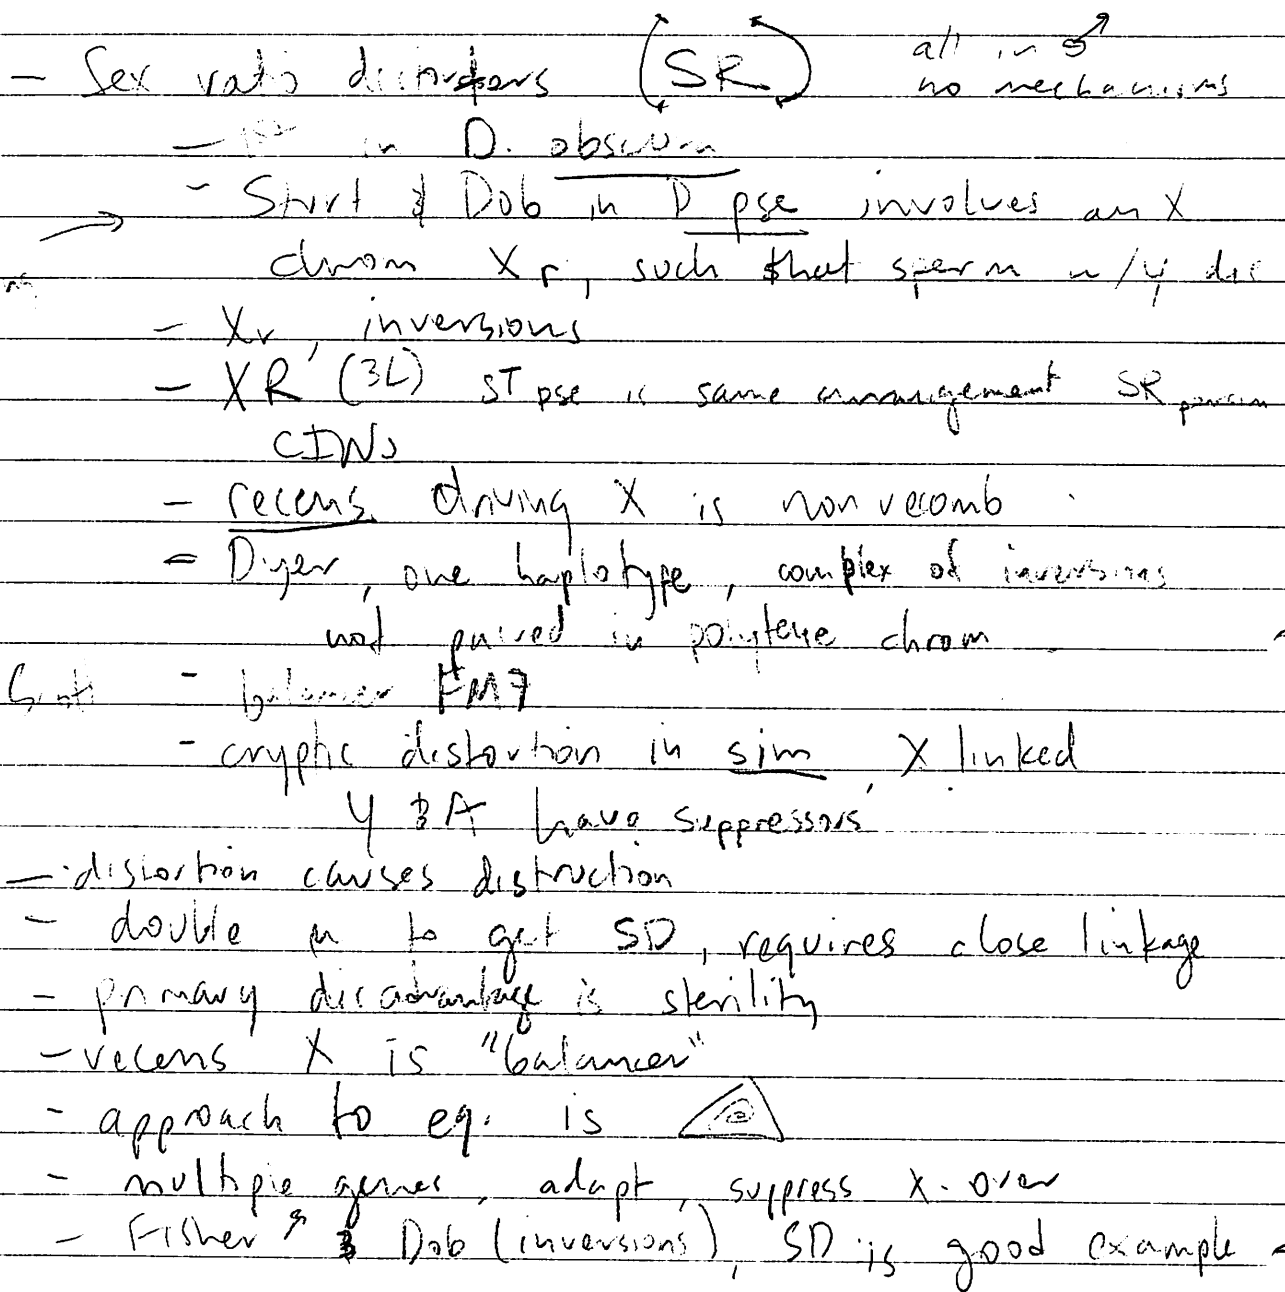 - Sex ratio distorters (SR) all in ♂
no mechanisms
- 1st in D. obscura
- Sturt & Dob in D pse involves an X
chrom Xr, such that sperm w/Y die
- Xr, inversions
- XR (3L) ST pse is same arrangement SR persim
CINs
- recens driving X is non recomb
- Dyer, one haplotype, complex of inversions
not paired in polytene chrom
- balancer FM7
- cryptic distortion in sim, X linked
Y & A have suppressors
- distortion causes distruction
- double μ to get SD, requires close linkage
- primary disadvantage is sterility
- recens X is "balancer"
- approach to eq. is
- multiple genes, adapt, suppress X-over
- Fisher & Dob (inversions), SD is good example